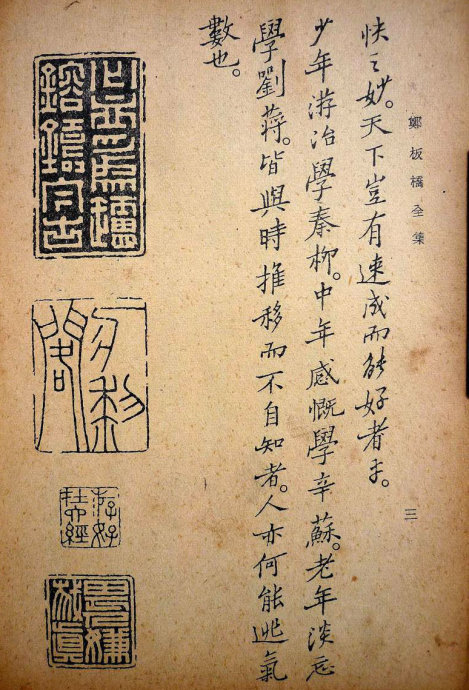 鄭板橋全集
三
快之妙。天下豈有速成而能好者乎。
少年游冶學秦柳。中年感慨學辛蘇。老年淡忘
學劉蔣。皆與時推移而不自知者。人亦何能逃氣
數也。
游好
在六經